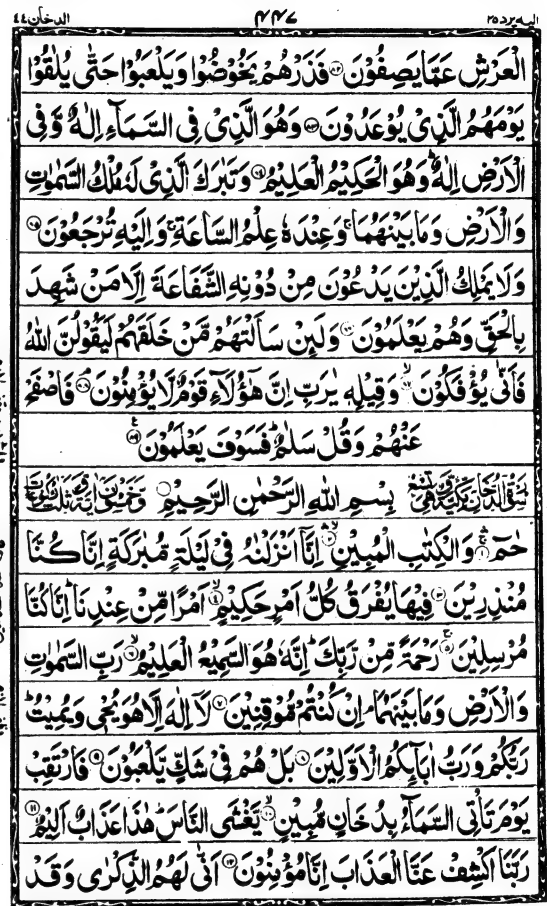 اليه يرد ٢٥ ٤٤٧ الدخان ٤٤
الْعَرْشِ عَمَّا يَصِفُوْنَ ﴿۸۲﴾ فَذَرْهُمْ يَخُوْضُوْا وَيَلْعَبُوْا حَتّٰى يُلٰقُوْا
يَوْمَهُمُ الَّذِىْ يُوْعَدُوْنَ ﴿۸۳﴾ وَهُوَ الَّذِىْ فِى السَّمَآءِ اِلٰهٌ وَّفِى
الْاَرْضِ اِلٰهٌ ؕ وَهُوَ الْحَكِيْمُ الْعَلِيْمُ ﴿۸۴﴾ وَتَبٰرَكَ الَّذِىْ لَهٗ مُلْكُ السَّمٰوٰتِ
وَالْاَرْضِ وَمَا بَيْنَهُمَا ۚ وَعِنْدَهٗ عِلْمُ السَّاعَةِ ۚ وَاِلَيْهِ تُرْجَعُوْنَ ﴿۸۵﴾
وَلَا يَمْلِكُ الَّذِيْنَ يَدْعُوْنَ مِنْ دُوْنِهِ الشَّفَاعَةَ اِلَّا مَنْ شَهِدَ
بِالْحَقِّ وَهُمْ يَعْلَمُوْنَ ﴿۸۶﴾ وَلَئِنْ سَاَلْتَهُمْ مَّنْ خَلَقَهُمْ لَيَقُوْلُنَّ اللّٰهُ
فَاَنّٰى يُؤْفَكُوْنَ ﴿۸۷﴾ وَقِيْلِهٖ يٰرَبِّ اِنَّ هٰٓؤُلَآءِ قَوْمٌ لَّا يُؤْمِنُوْنَ ﴿۸۸﴾ فَاصْفَحْ
عَنْهُمْ وَقُلْ سَلٰمٌ ؕ فَسَوْفَ يَعْلَمُوْنَ ﴿۸۹﴾
بِسْمِ اللّٰهِ الرَّحْمٰنِ الرَّحِيْمِ
حٰمٓ ﴿۱﴾ وَالْكِتٰبِ الْمُبِيْنِ ﴿۲﴾ اِنَّاۤ اَنْزَلْنٰهُ فِىْ لَيْلَةٍ مُّبٰرَكَةٍ اِنَّا كُنَّا
مُنْذِرِيْنَ ﴿۳﴾ فِيْهَا يُفْرَقُ كُلُّ اَمْرٍ حَكِيْمٍ ﴿۴﴾ اَمْرًا مِّنْ عِنْدِنَا ؕ اِنَّا كُنَّا
مُرْسِلِيْنَ ﴿۵﴾ رَحْمَةً مِّنْ رَّبِّكَ ؕ اِنَّهٗ هُوَ السَّمِيْعُ الْعَلِيْمُ ﴿۶﴾ رَبِّ السَّمٰوٰتِ
وَالْاَرْضِ وَمَا بَيْنَهُمَا ۘ اِنْ كُنْتُمْ مُّوْقِنِيْنَ ﴿۷﴾ لَاۤ اِلٰهَ اِلَّا هُوَ يُحْىٖ وَيُمِيْتُ ؕ
رَبُّكُمْ وَرَبُّ اٰبَآئِكُمُ الْاَوَّلِيْنَ ﴿۸﴾ بَلْ هُمْ فِىْ شَكٍّ يَّلْعَبُوْنَ ﴿۹﴾ فَارْتَقِبْ
يَوْمَ تَاْتِى السَّمَآءُ بِدُخَانٍ مُّبِيْنٍ ﴿۱۰﴾ يَّغْشَى النَّاسَ ؕ هٰذَا عَذَابٌ اَلِيْمٌ ﴿۱۱﴾
رَبَّنَا اكْشِفْ عَنَّا الْعَذَابَ اِنَّا مُؤْمِنُوْنَ ﴿۱۲﴾ اَنّٰى لَهُمُ الذِّكْرٰى وَقَدْ